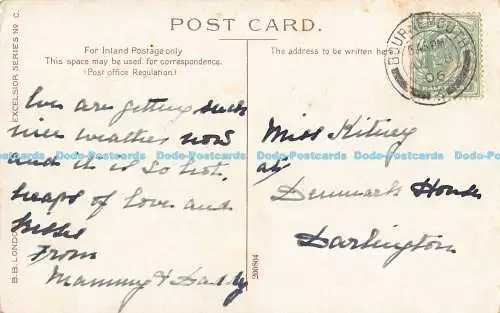 POST CARD.
For Inland Postage only
This space may be used for correspondence.
(Post Office Regulation.)
The address to be written here
BOURNEMOUTH
06
EXCELSIOR SERIES No C.
B.B. LONDON
We are getting such
nice weather now
and it is so hot.
heaps of love and
kisses
From
Mammy & Daddy
Miss Kitney
at
Denmark House
Darlington
200804
Dodo-Postcards Dodo-Postcards Dodo-Postcards Dodo-Postcards